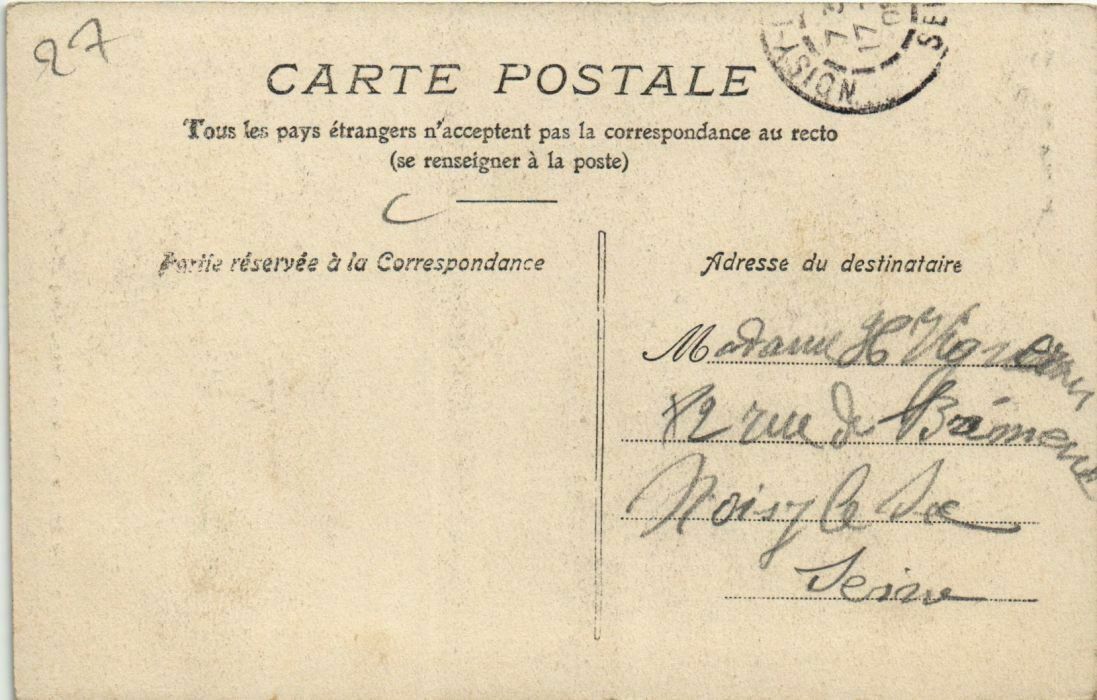 27
CARTE POSTALE
Tous les pays étrangers n'acceptent pas la correspondance au recto
(se renseigner à la poste)
Partie réservée à la Correspondance
Adresse du destinataire
NOISY-L
SEI
Madame H
rue de
Noisy le Sec
Seine